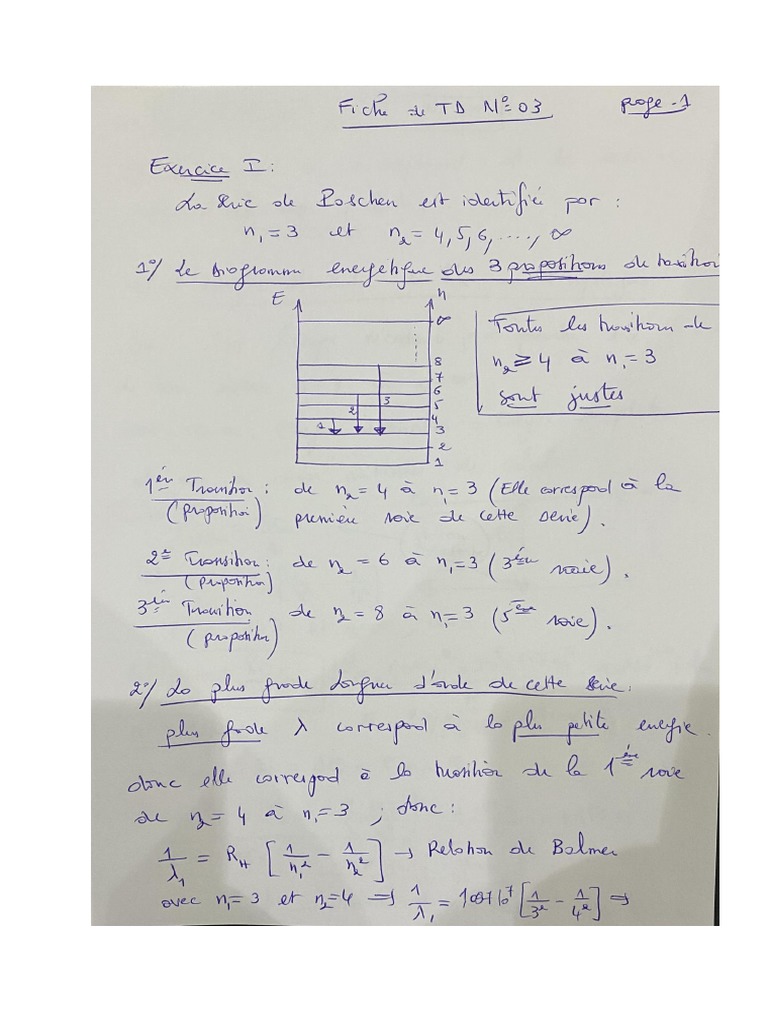 Fiche de TD N°=03 page-1
Exercice I:
La serie de Paschen est identifiée par :
n₁ = 3 et n₂ = 4, 5, 6, ...., ∞
1°/ Le Diagramme energetique des 3 propositions de transition
E n
∞
8
7
6
5
4
3
2
1
1 2 3
Toutes les transitions de
n₂ ⩾ 4 à n₁ = 3
sont justes
1ère Transition : de n₂ = 4 à n₁ = 3 (Elle correspond à la
(proposition) première raie de cette serie).
2e Transition : de n₂ = 6 à n₁ = 3 (3ème raie).
(proposition)
3ème Transition de n₂ = 8 à n₁ = 3 (5ème raie).
(proposition)
2°/ La plus grande longueur d'onde de cette serie :
plus grande λ correspond à la plus petite energie.
donc elle correspond à la transition de la 1ère raie
de n₂ = 4 à n₁ = 3 ; donc :
1/λ₁ = R_H [1/n₁² - 1/n₂²] → Relation de Balmer
avec n₁ = 3 et n₂ = 4 ⇒ 1/λ₁ = [1/3² - 1/4²] ⇒